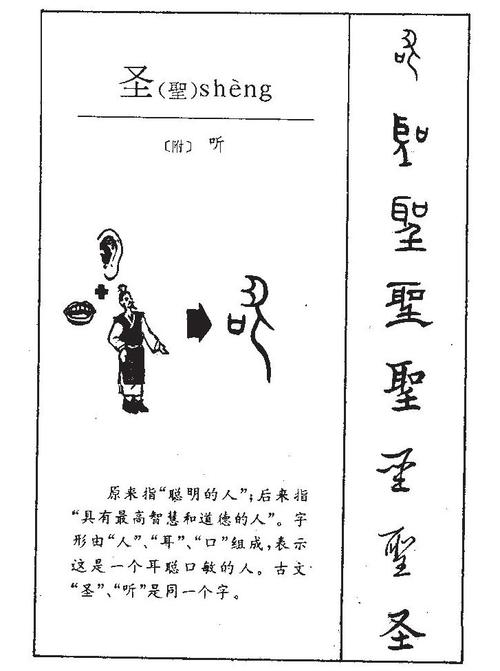 圣(聖)shèng
〔附〕 听
原来指“聪明的人”;后来指
“具有最高智慧和道德的人”。字
形由“人”、“耳”、“口”组成,表示
这是一个耳聪口敏的人。古文
“圣”、“听”是同一个字。
聖
聖
聖
圣